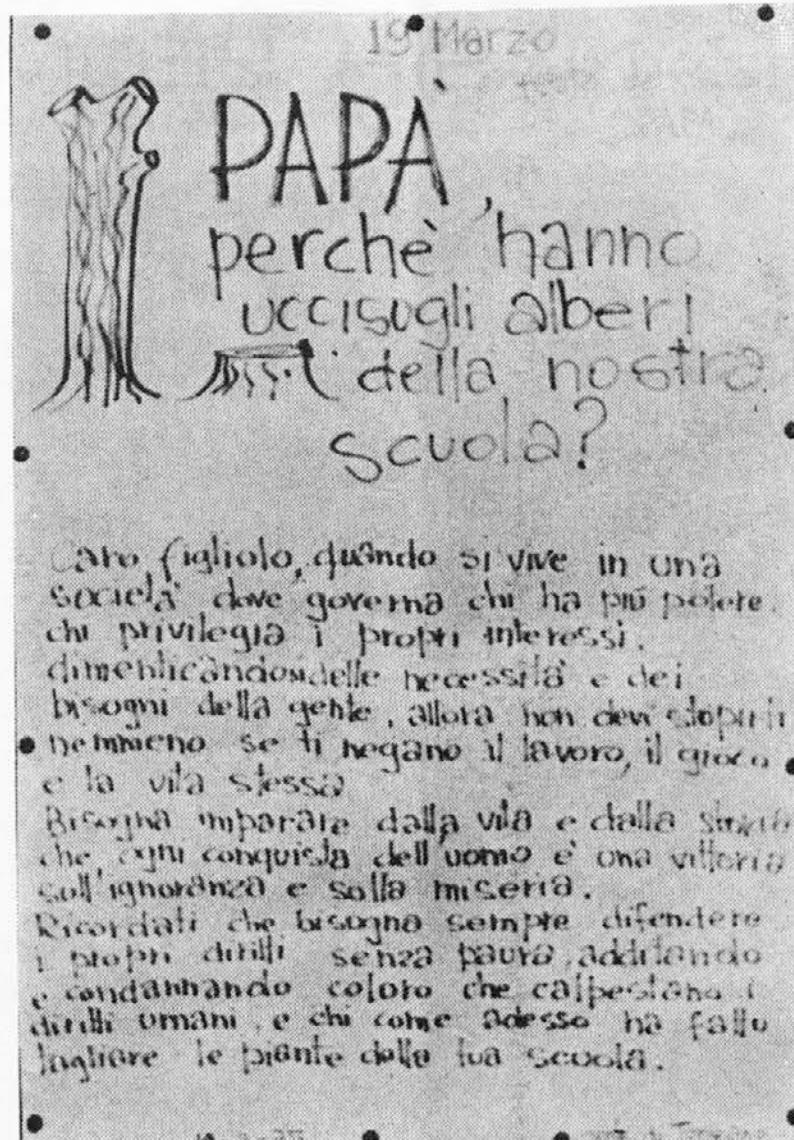 19 Marzo
PAPÀ
perchè hanno
uccisogli alberi
della nostra
scuola?
Caro figliolo, quando si vive in una
società dove governa chi ha più potere,
chi privilegia i propri interessi,
dimenticandosi delle necessità e dei
bisogni della gente, allora non devi stupirti
nemmeno se ti negano il lavoro, il gioco
e la vita stessa
Bisogna imparare dalla vita e dalla storia
che ogni conquista dell'uomo è una vittoria
sull'ignoranza e sulla miseria.
Ricordati che bisogna sempre difendere
i propri diritti senza paura, additando
e condannando coloro che calpestano i
diritti umani, e chi come adesso ha fatto
tagliare le piante della tua scuola.